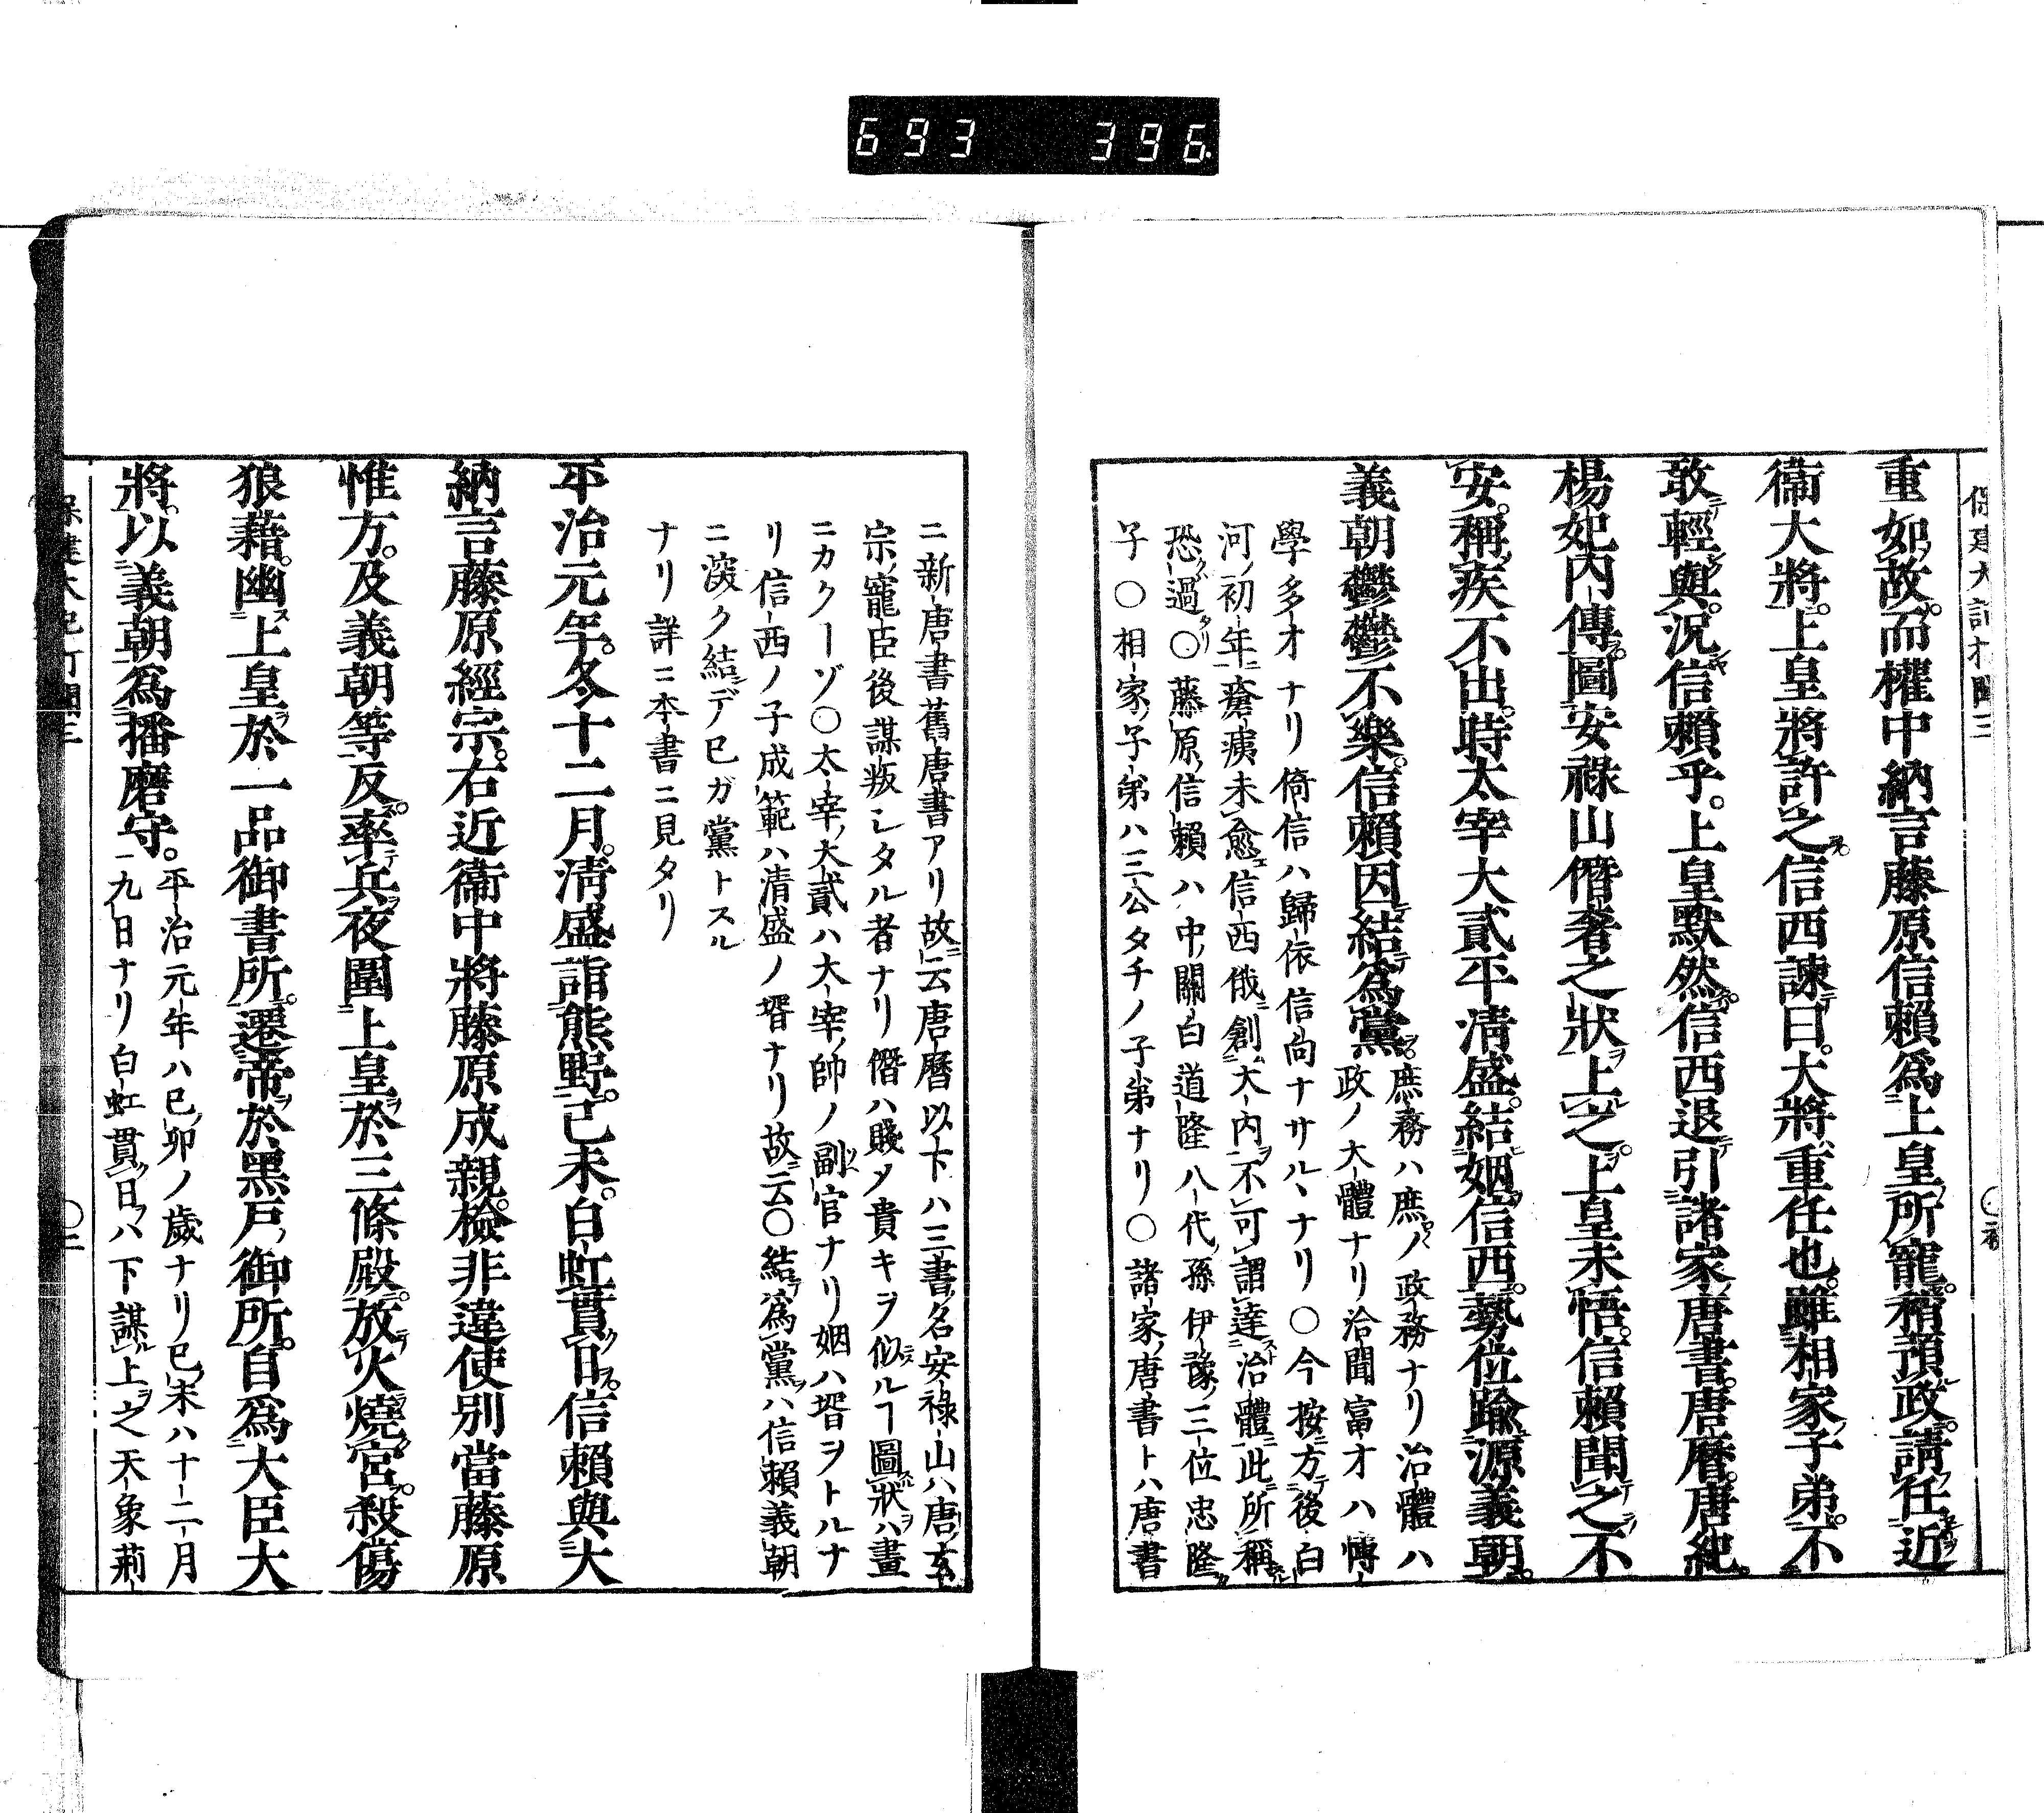 693 396
重如故而權中納言藤原信賴爲上皇所寵稍預政請任近
衞大將上皇將許之信西諫曰大將重任也雖相家子弟不
敢輕與況信賴乎上皇默然信西退引諸家唐書唐曆唐紀
楊妃内傳圖安祿山僭奢之狀上之上皇未悟信賴聞之不
安稱疾不出時太宰大貳平清盛結姻信西勢位踰源義朝
義朝鬱鬱不樂信賴因結爲黨
庶務ハ庶ノ政務ナリ治體ハ
政ノ大體ナリ洽聞富才ハ博
學多才ナリ倚信ハ歸依信向ナサルヽナリ〇今按方後白
河初年瘡痍未愈信西俄創大内不可謂達治體此所稱
恐過〇藤原信賴ハ中關白道隆八代孫伊豫三位忠隆
子〇相家子弟ハ三公タチノ子弟ナリ〇諸家唐書トハ唐書
ニ新唐書舊唐書アリ故云唐曆以下ハ三書名安祿山ハ唐玄
宗寵臣後謀叛シタル者ナリ僭ハ賤メ貴キヲ似ルヿ圖狀ハ畫
ニカクーゾ〇太宰大貳ハ大宰帥ノ副官ナリ姻ハ壻ヲトルナ
リ信西ノ子成範ハ清盛ノ壻ナリ故云〇結爲黨ハ信賴義朝
ニ深ク結デ己ガ黨トスル
ナリ詳ニ本書ニ見タリ
平治元年冬十二月清盛詣熊野己未白虹貫日信賴與大
納言藤原經宗右近衞中將藤原成親檢非違使別當藤原
惟方及義朝等反率兵夜圍上皇於三條殿放火燒宮殺傷
狼藉幽上皇於一品御書所遷帝於黑戸御所自爲大臣大
將以義朝爲播磨守
平治元年ハ己卯ノ歲ナリ己未ハ十二月
九日ナリ白虹貫日ハ下謀上之天象荊
二